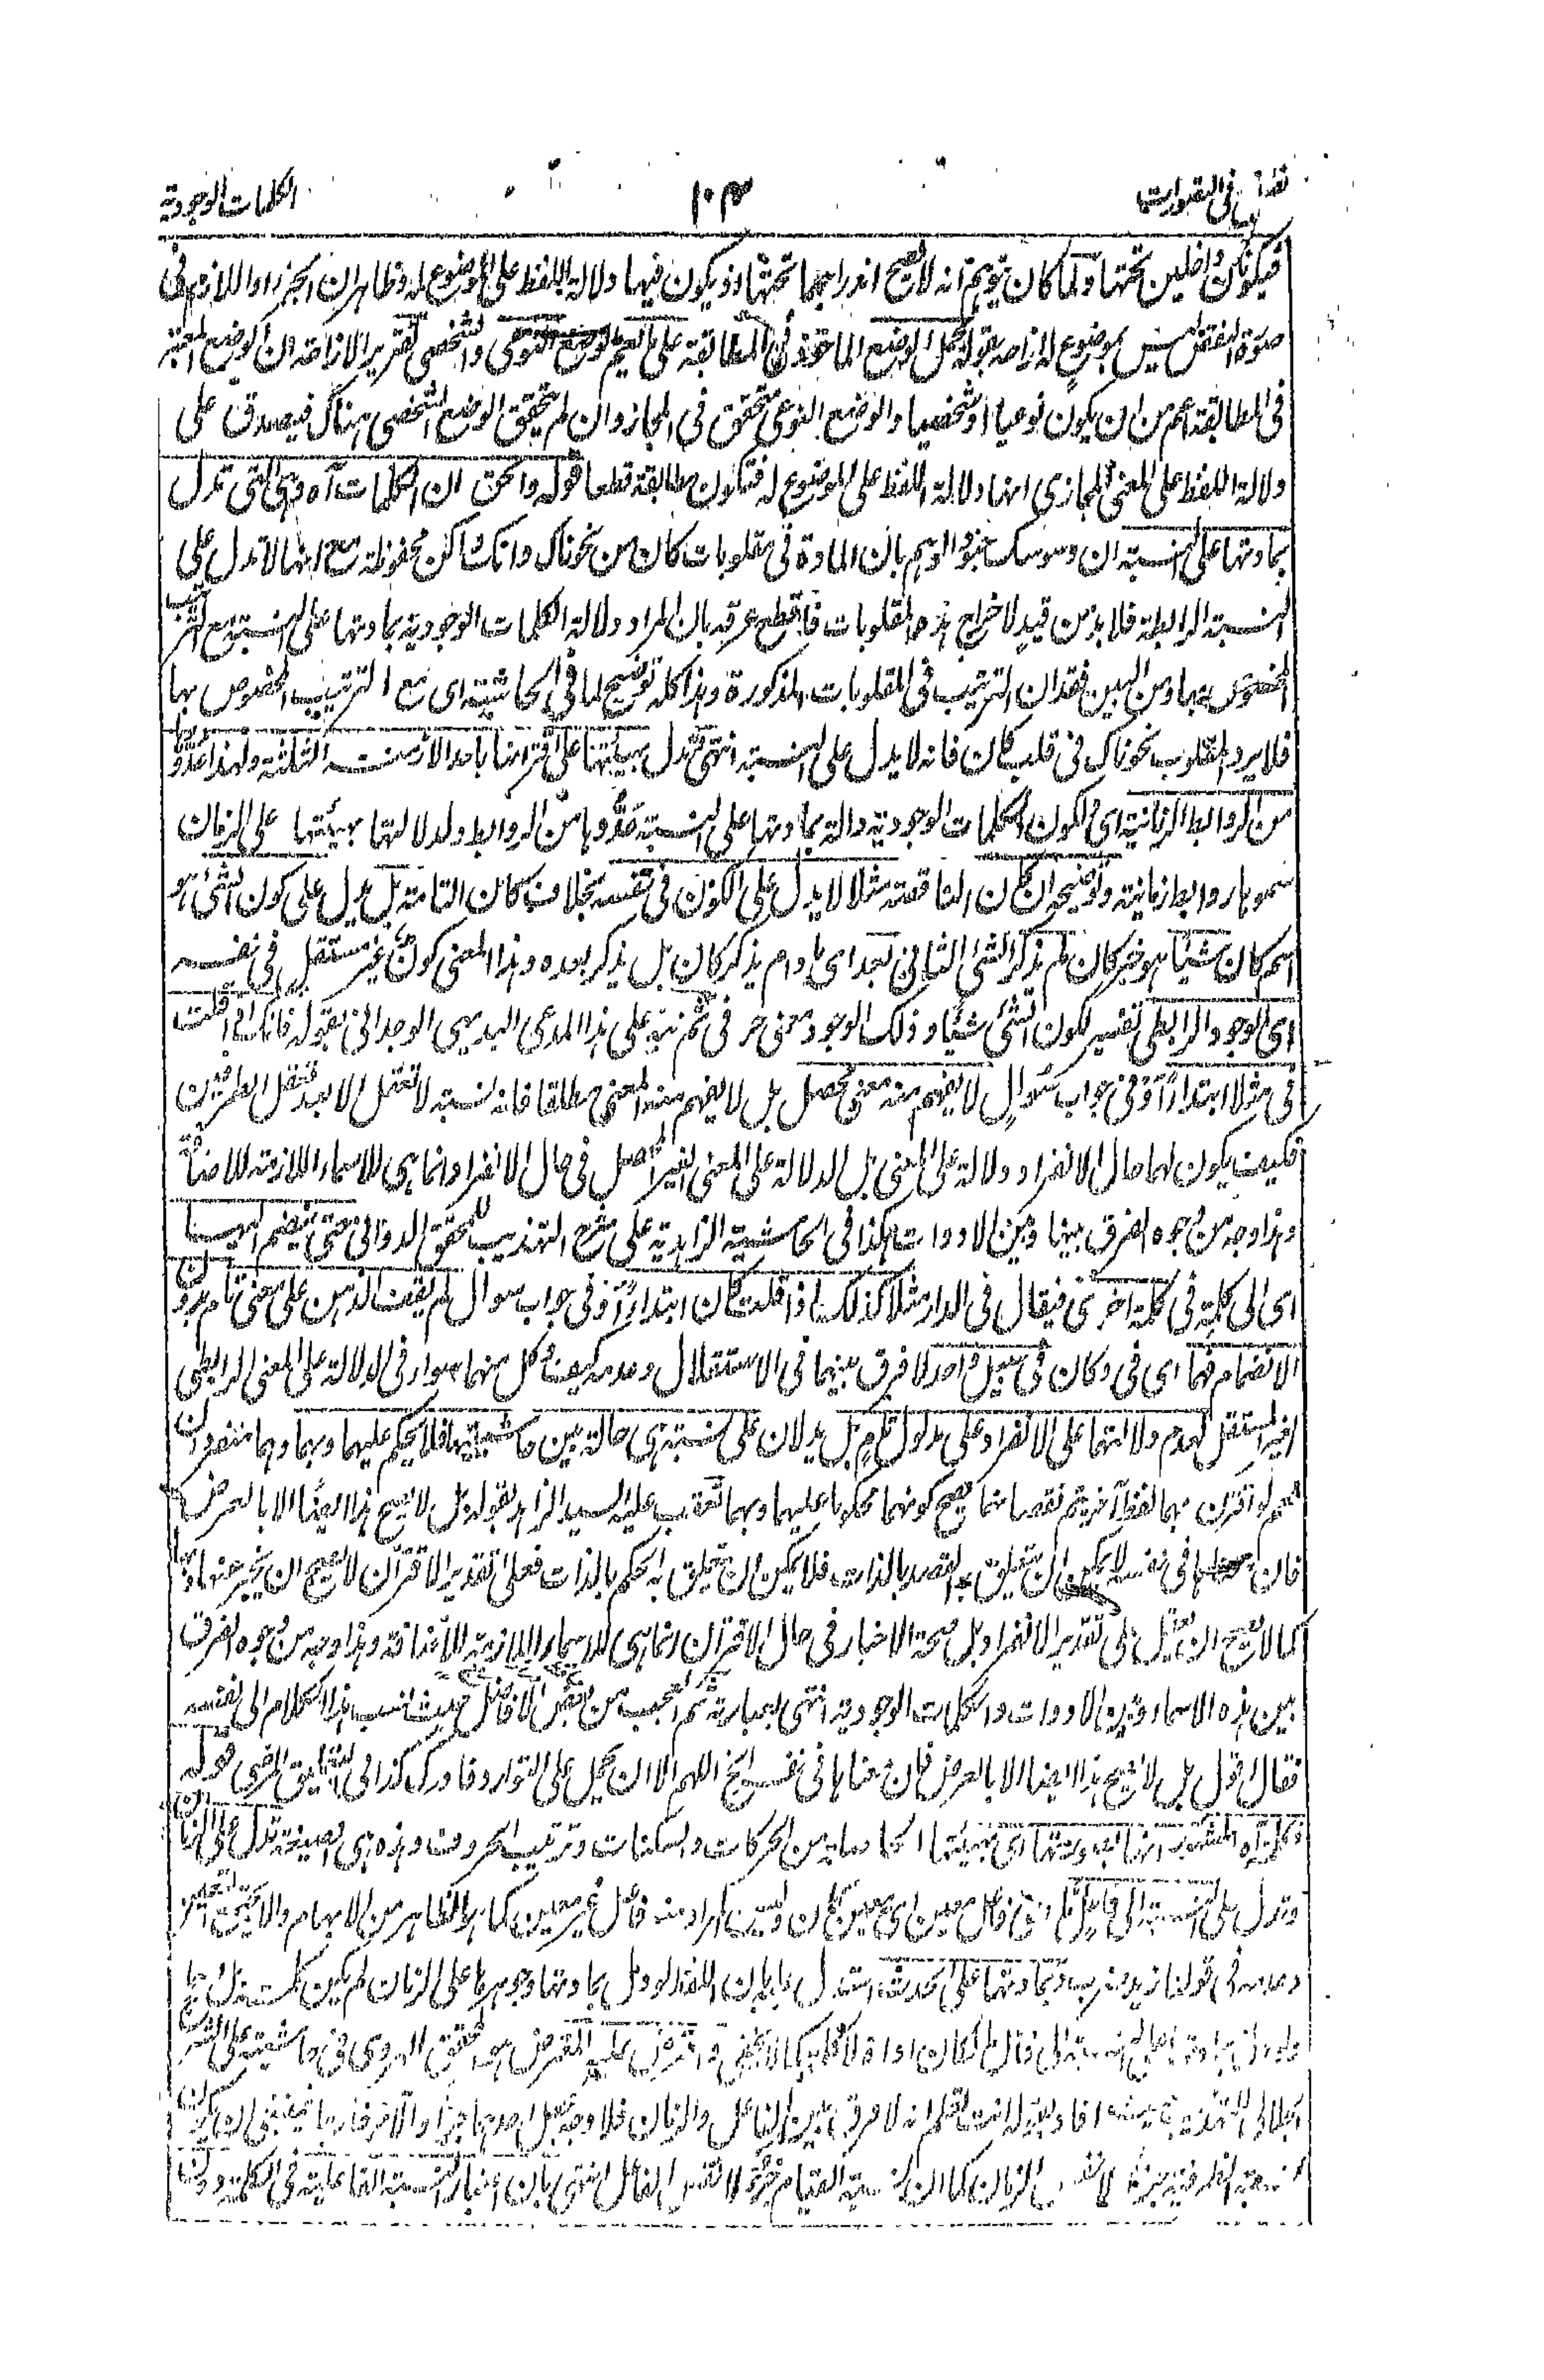 فى التصورات ١٠٣ الكلمات الوجودية
فيكونان داخلين تحتها ولما كان يتوهم انه لا يصح اندراجهما تحتها اذ يكون فيها دلالة اللفظ على الموضوع له وظاهر ان الجزء او اللازم فى
صورة التضمن ليس بموضوع له ازاحه بقوله الوضع الماخوذ فى المطابقة على تعميم الوضع النوعى والشخصى تقرير الازاحة ان الوضع المعتبر
فى المطابقة اعم من ان يكون نوعيا او شخصيا والوضع النوعى متحقق فى المجاز وان لم يتحقق الوضع الشخصى هناك فيصدق على
دلالة اللفظ على المعنى المجازى انها دلالة اللفظ على الموضوع له فتكون مطابقة قطعا قوله والحق ان الكلمات آه وهى التى تدل
بمادتها على النسبة ان وسوسك الوهم بان المادة فى مقلوبات كان من نحو ناك وانك واكن محفوظة مع انها لا تدل على
النسبة الرابطة فلا بد من قيد لاخراج هذه المقلوبات فاقطع عرقه بان المراد دلالة الكلمات الوجودية بمادتها على النسبة مع الترتيب
المخصوص بها ومن البين فقدان الترتيب فى المقلوبات المذكورة وهذا كله توضيح لما فى الحاشية اى مع الترتيب المخصوص بها
فلا يرد المقلوب نحو ناك فى قلب كان فانه لا يدل على النسبة انتهى وتدل بهيئتها على اقترانها باحد الازمنة الثلثة ولهذا عدوها
من الروابط الزمانية اى لكون الكلمات الوجودية دالة بمادتها على النسبة عدوها من الروابط ولدلالتها بهيئتها على الزمان
سموها روابط زمانية وتوضيحه ان كان الناقصة مثلا لا يدل على الكون فى نفسه بخلاف كان التامة بل يدل على كون الشئ هو
اسم كان شيئا هو خبر كان لم يذكر الشئ الثانى بعد اى ما دام يذكر كان بل يذكر بعده وهذا المعنى كون غير مستقل فى نفسه
اى الوجود الرابطى تفسير لكون الشئ شيئا وذلك الوجود معنى حرفى ثم نبه على هذا المدعى البديهى الوجدانى بقوله فانك اذا قلت
فى مثلا ابتداء او فى جواب سوال لا يفهم منه معنى محصل بل لا يفهم منه المعنى مطلقا فانه نسبة لا تعقل الا بعد تعقل الطرفين
فكيف يكون لها حال الانفراد دلالة على المعنى بل الدلالة على المعنى الغير المحصل فى حال الانفراد انما هى للاسماء اللازمة للاضافة
وهذا وجه من وجوه الفرق بينها وبين الادوات هكذا فى الحاشية الزاهدية على شرح التهذيب للمحقق الدوانى حتى ينضم اليها
اى الى كلمة فى كلمة اخرى فيقال فى الدار مثلا كذلك اذا قلت كان ابتداء او فى جواب سوال لم يقف الذهن على معنى تام بدون
الانضمام فهما اى فى وكان فى سبيل واحد لا فرق بينهما فى الاستقلال وعدمه كيف وكل منهما سواء فى الدلالة على المعنى الرابطى
الغير المستقل لعدم دلالتهما على الانفراد على مدلول تام بل يدلان على نسبة هى حالة بين حاشيتيها فلا يحكم عليهما وبهما وهما منفردان
نعم لو اقترن بهما لفظ آخر يتم نقصانهما يصح كونهما محكوما عليهما وبهما تعقب عليه السيد الزاهد بقوله بل لا يصح هذا ايضا الا بالعرض
فان معناها فى نفسه لا يمكن ان يتعلق به القصد بالذات فلا يمكن ان يتعلق به الحكم بالذات فعلى تقدير الاقتران لا يصح ان يخبر عنها وبها
كما لا يصح ان يعقل على تقدير الانفراد بل صحة الاخبار فى حال الاقتران انما هى للاسماء اللازمة للاضافة وهذا وجه من وجوه الفرق
بين هذه الاسماء وبين الادوات والكلمات الوجودية انتهى بعبارته ثم العجب من بعض الافاضل حيث انسب هذا الكلام الى نفسه
فقال اقول بل لا يصح هذا ايضا الا بالعرض فان معناها فى نفسه الخ اللهم الا ان يحمل على التوارد فادرك كذا فى التعليق المرضى قوله
اى بهيئتها الحاصلة من الحركات والسكنات وترتيب الحروف وهذه هى الصيغة تدل على الزمان
وتدل على النسبة الى فاعل ما اى فاعل معين اى معين كان وليس المراد منه فاعل غير معين كما هو الظاهر من الابهام
فى قولنا زيد ضرب وبمادتها على الحدث استدل بان اللفظ لو دل بمادتها وجوهرها على الزمان لم يكن
على النسبة الى فاعل ما لكان اداة لا كلمة كما لا يخفى واعترض عليه المعترض هو المحقق الهروى فى حاشيته على الشرح
الجلالى للتهذيب انت تعلم انه لا فرق بين الفاعل والزمان فلا وجه لجعل احدهما جزأ والآخر خارجا
الزمان كما ان نسبة القيام جزء لا نفس الفاعل انتهى بان اعتبار النسبة الفاعلية فى الكلمة